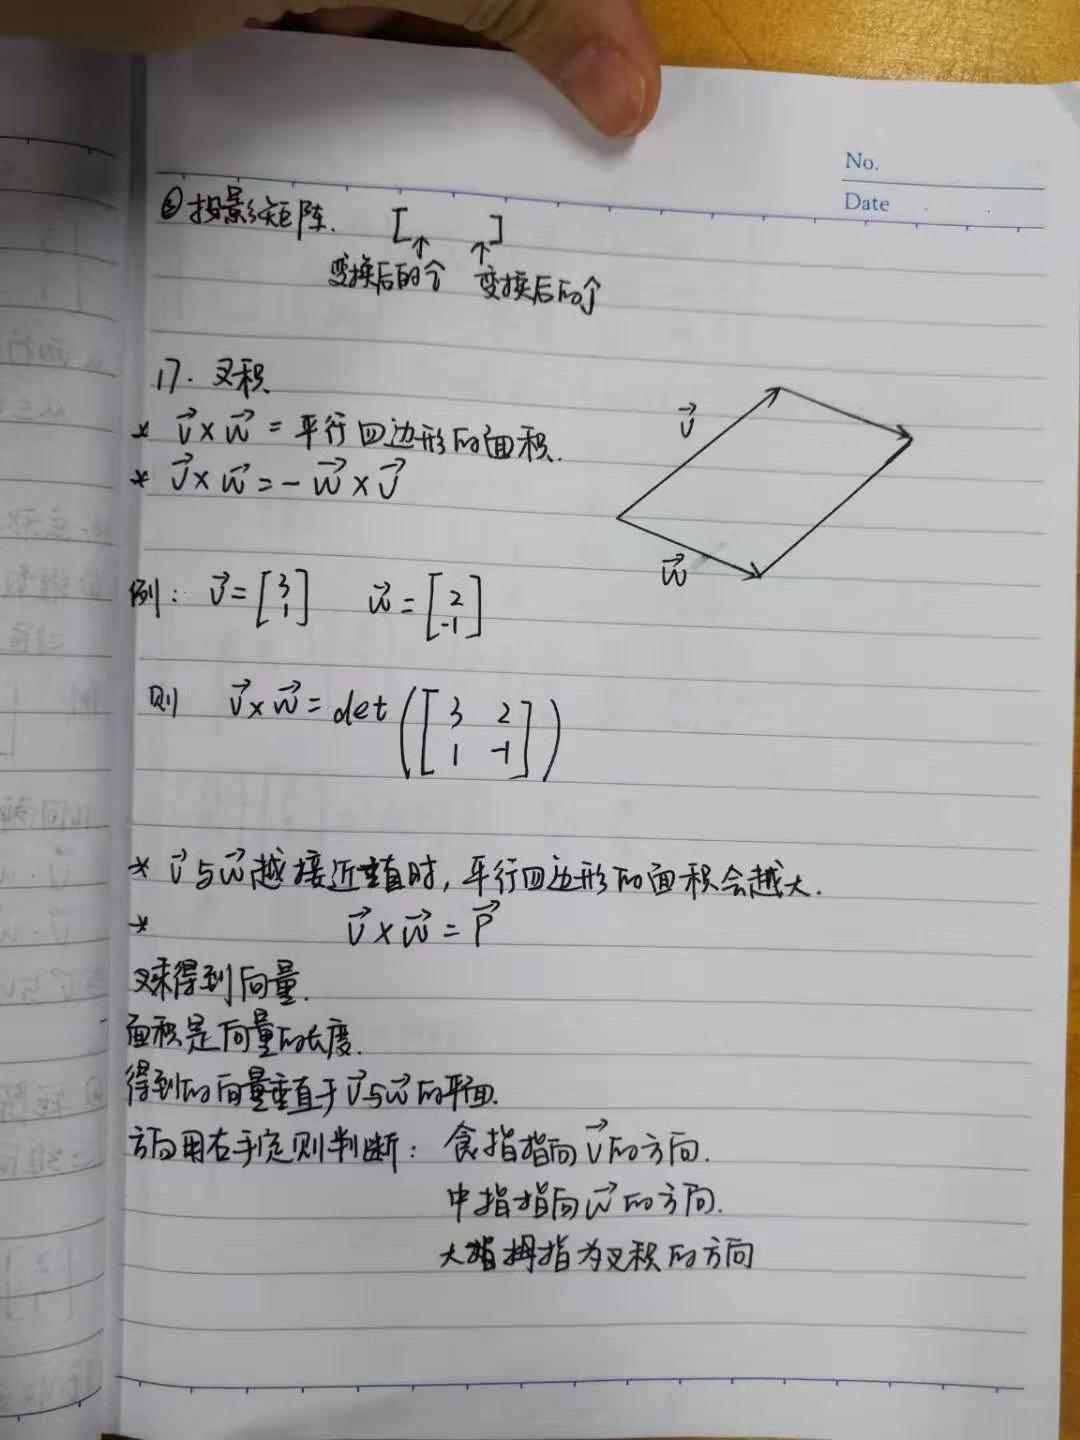 No.
Date
② 投影矩阵. [ ]
↑ ↑
变换后的î 变换后的ĵ
17. 叉积
* v⃗ × w⃗ = 平行四边形的面积.
* v⃗ × w⃗ = - w⃗ × v⃗
v⃗
w⃗
例: v⃗ = [3 1] w⃗ = [2 -1]
则 v⃗ × w⃗ = det ([3 2
1 -1])
* v⃗与w⃗越接近垂直时, 平行四边形的面积会越大.
* v⃗ × w⃗ = p⃗
叉乘得到向量.
面积是向量的长度.
得到的向量垂直于v⃗与w⃗的平面.
方向用右手定则判断: 食指指向v⃗的方向.
中指指向w⃗的方向.
大拇指为叉积的方向